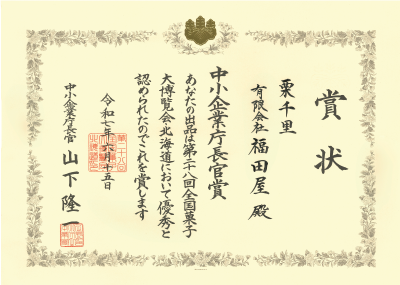 賞状
栗千里
有限会社 福田屋 殿
中小企業庁長官賞
あなたの出品は第二十八回全国菓子
大博覧会・北海道において優秀と
認められたのでこれを賞します
令和七年六月十五日
中小企業庁長官 山下隆一